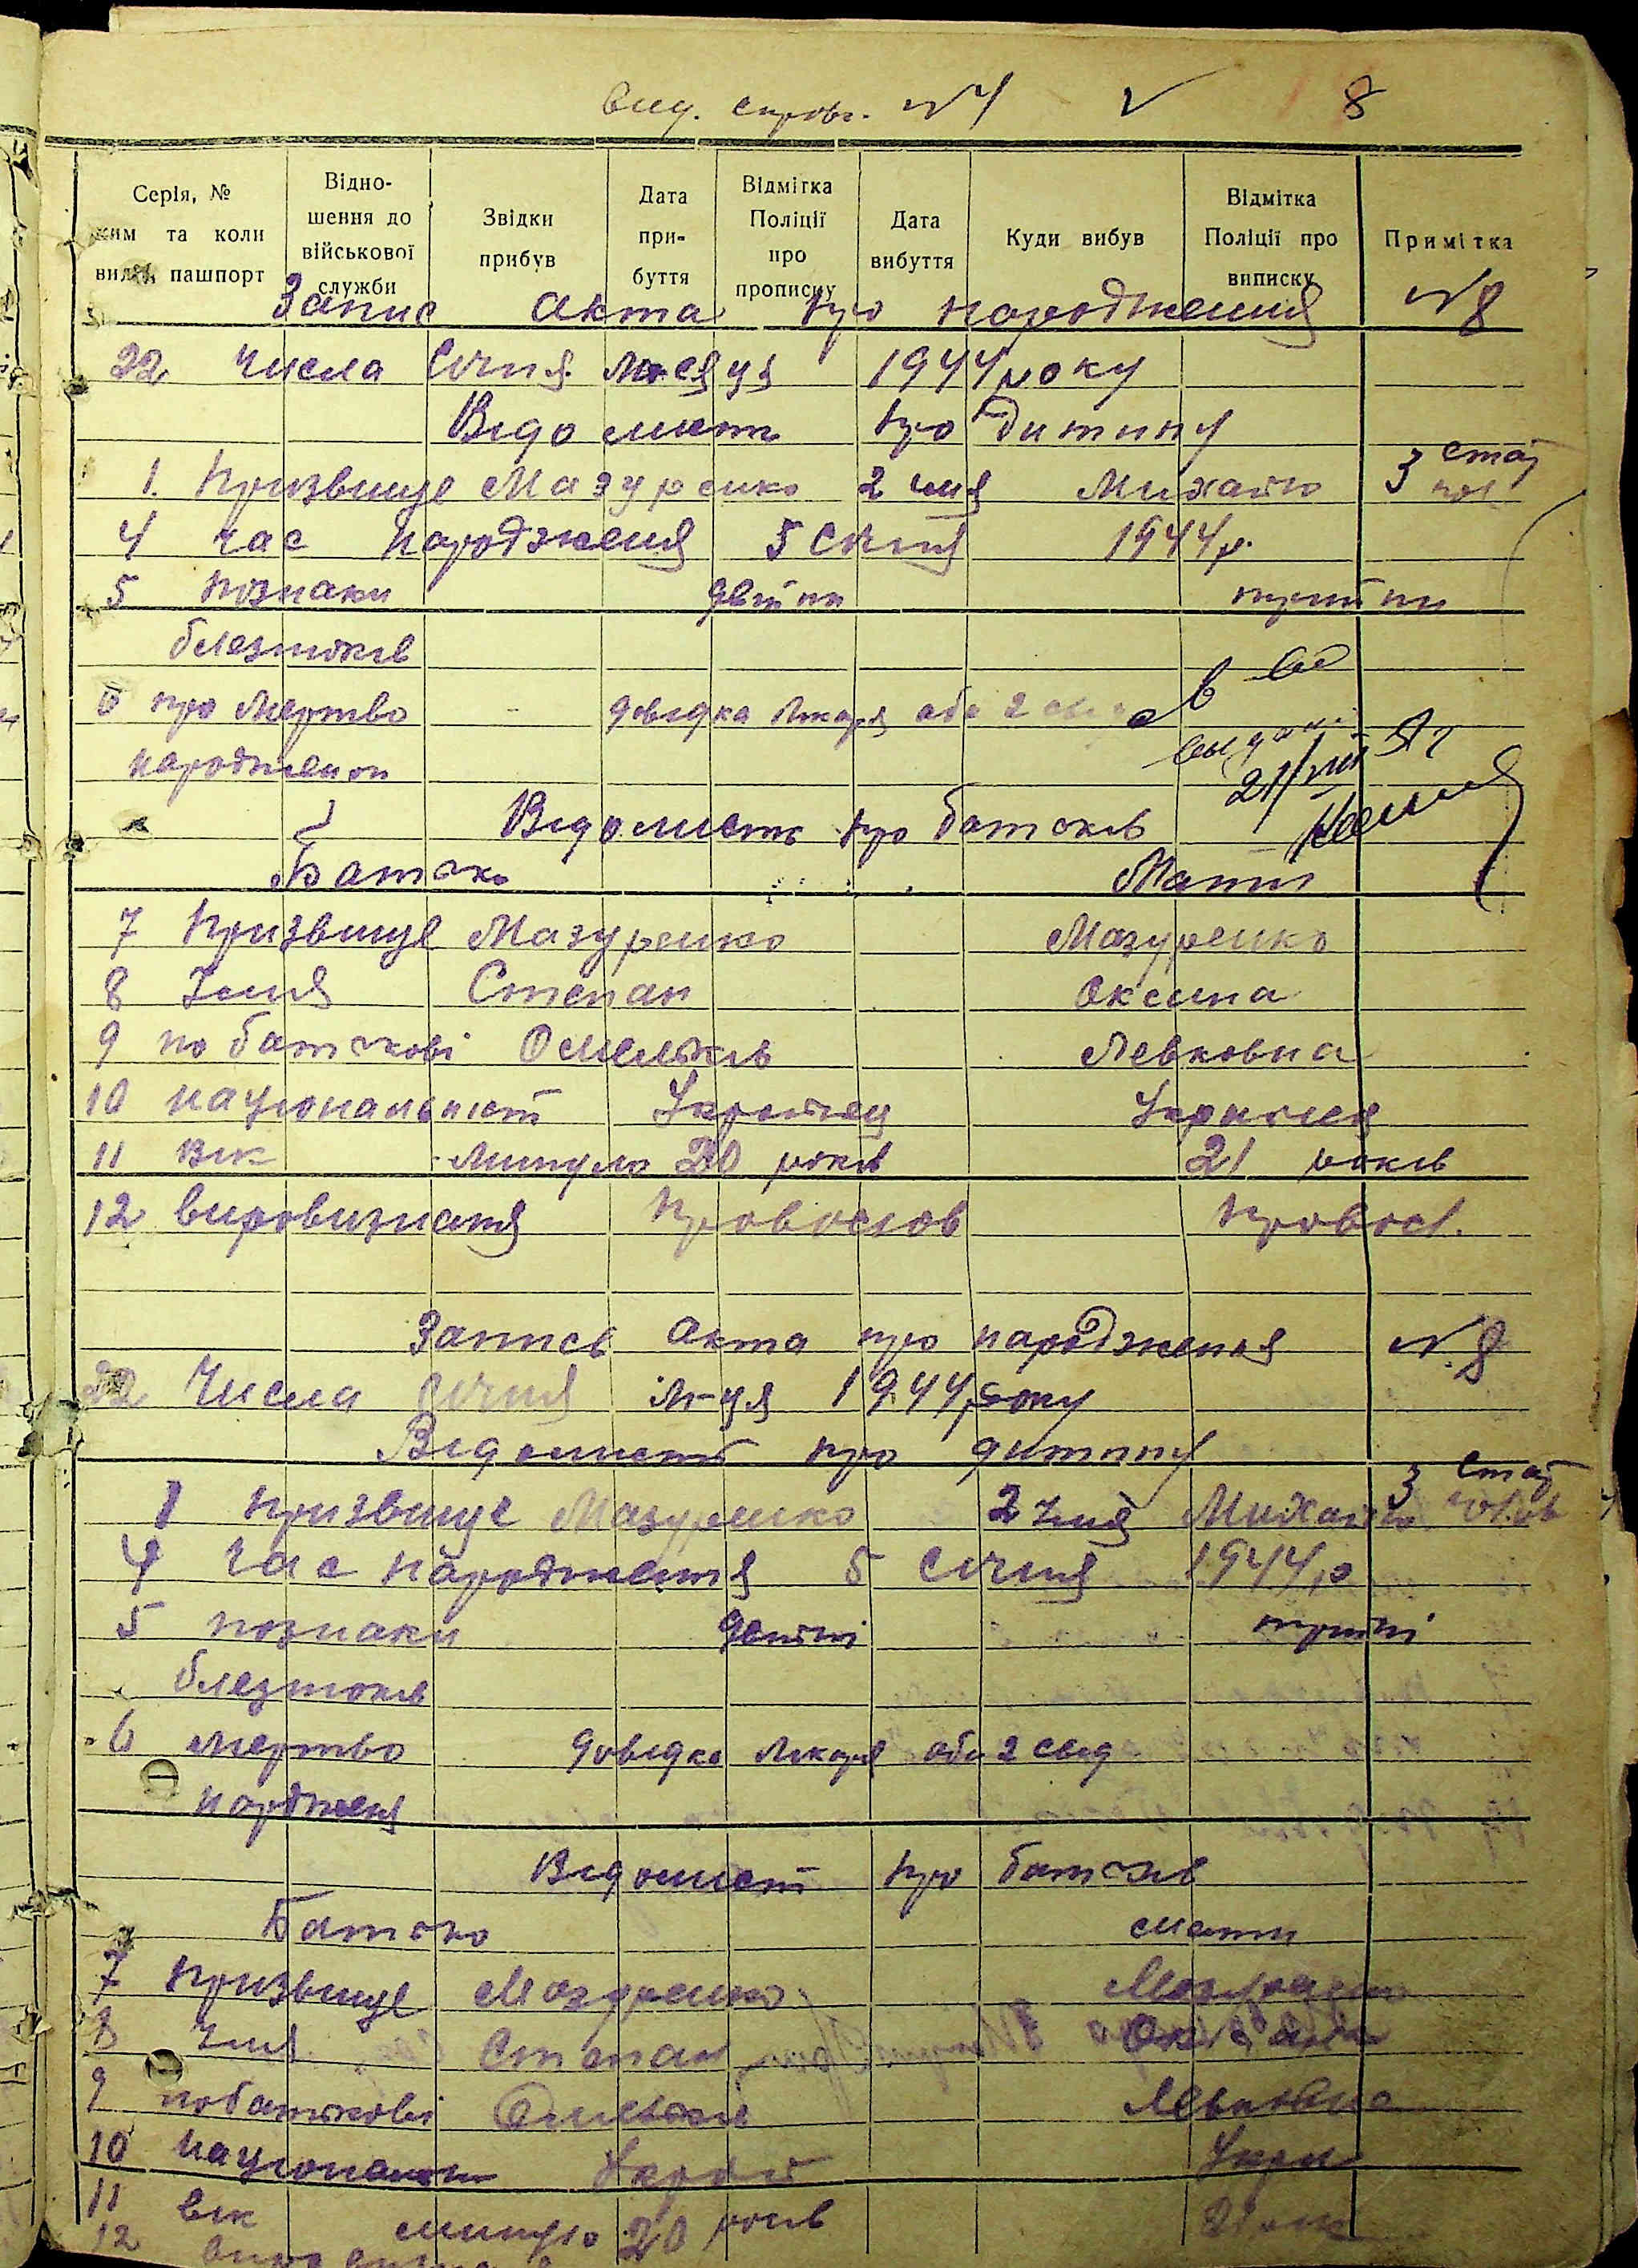 № 4 V 8
Серія, № ким та коли видан пашпорт
Відно-шення до військової служби
Звідки прибув
Дата при-буття
Відмітка Поліції про прописку
Дата вибуття
Куди вибув
Відмітка Поліції про виписку
Примітка
Запис акта про народження №8
22 числа Січня Місяця 1944 року
Відомисть про дитину
1. Призвище Мазуренко 2 имя Михайло 3 стать чол
4 час народження 5 Січня 1944 р.
5 познаки двійни трийни
блезнюків
6 про мертво довідка лікаря або 2
народжених
21/VIII
Відомисть про батьків
Батько Мати
7 Призвище Мазуренко Мазуренко
8 Імя Степан Оксина
9 по батькові Омельків Левковна
10 національніст Україніец Українця
11 вік минуло 20 років 21 років
12 вировизнаня православ православ.
Запись акта про народження №8
22 Числа Січня М-ця 1944 року
Відомисть про дитину
1 призвище Мазуренко 2 Імя Михайло 3 стать
4 час народження 5 Січня 1944 р
5 познаки двійні трійні
блезнюків
6 мертво довідка лікаря або 2 свід
народженя
Відомист про батьків
Батько мати
7 призвище Мазуренко Мазуренко
8 Імя Степан
9 побатькові Омельків Левковна
10 національ Україн Укра
11 вік минуло 20 років
12